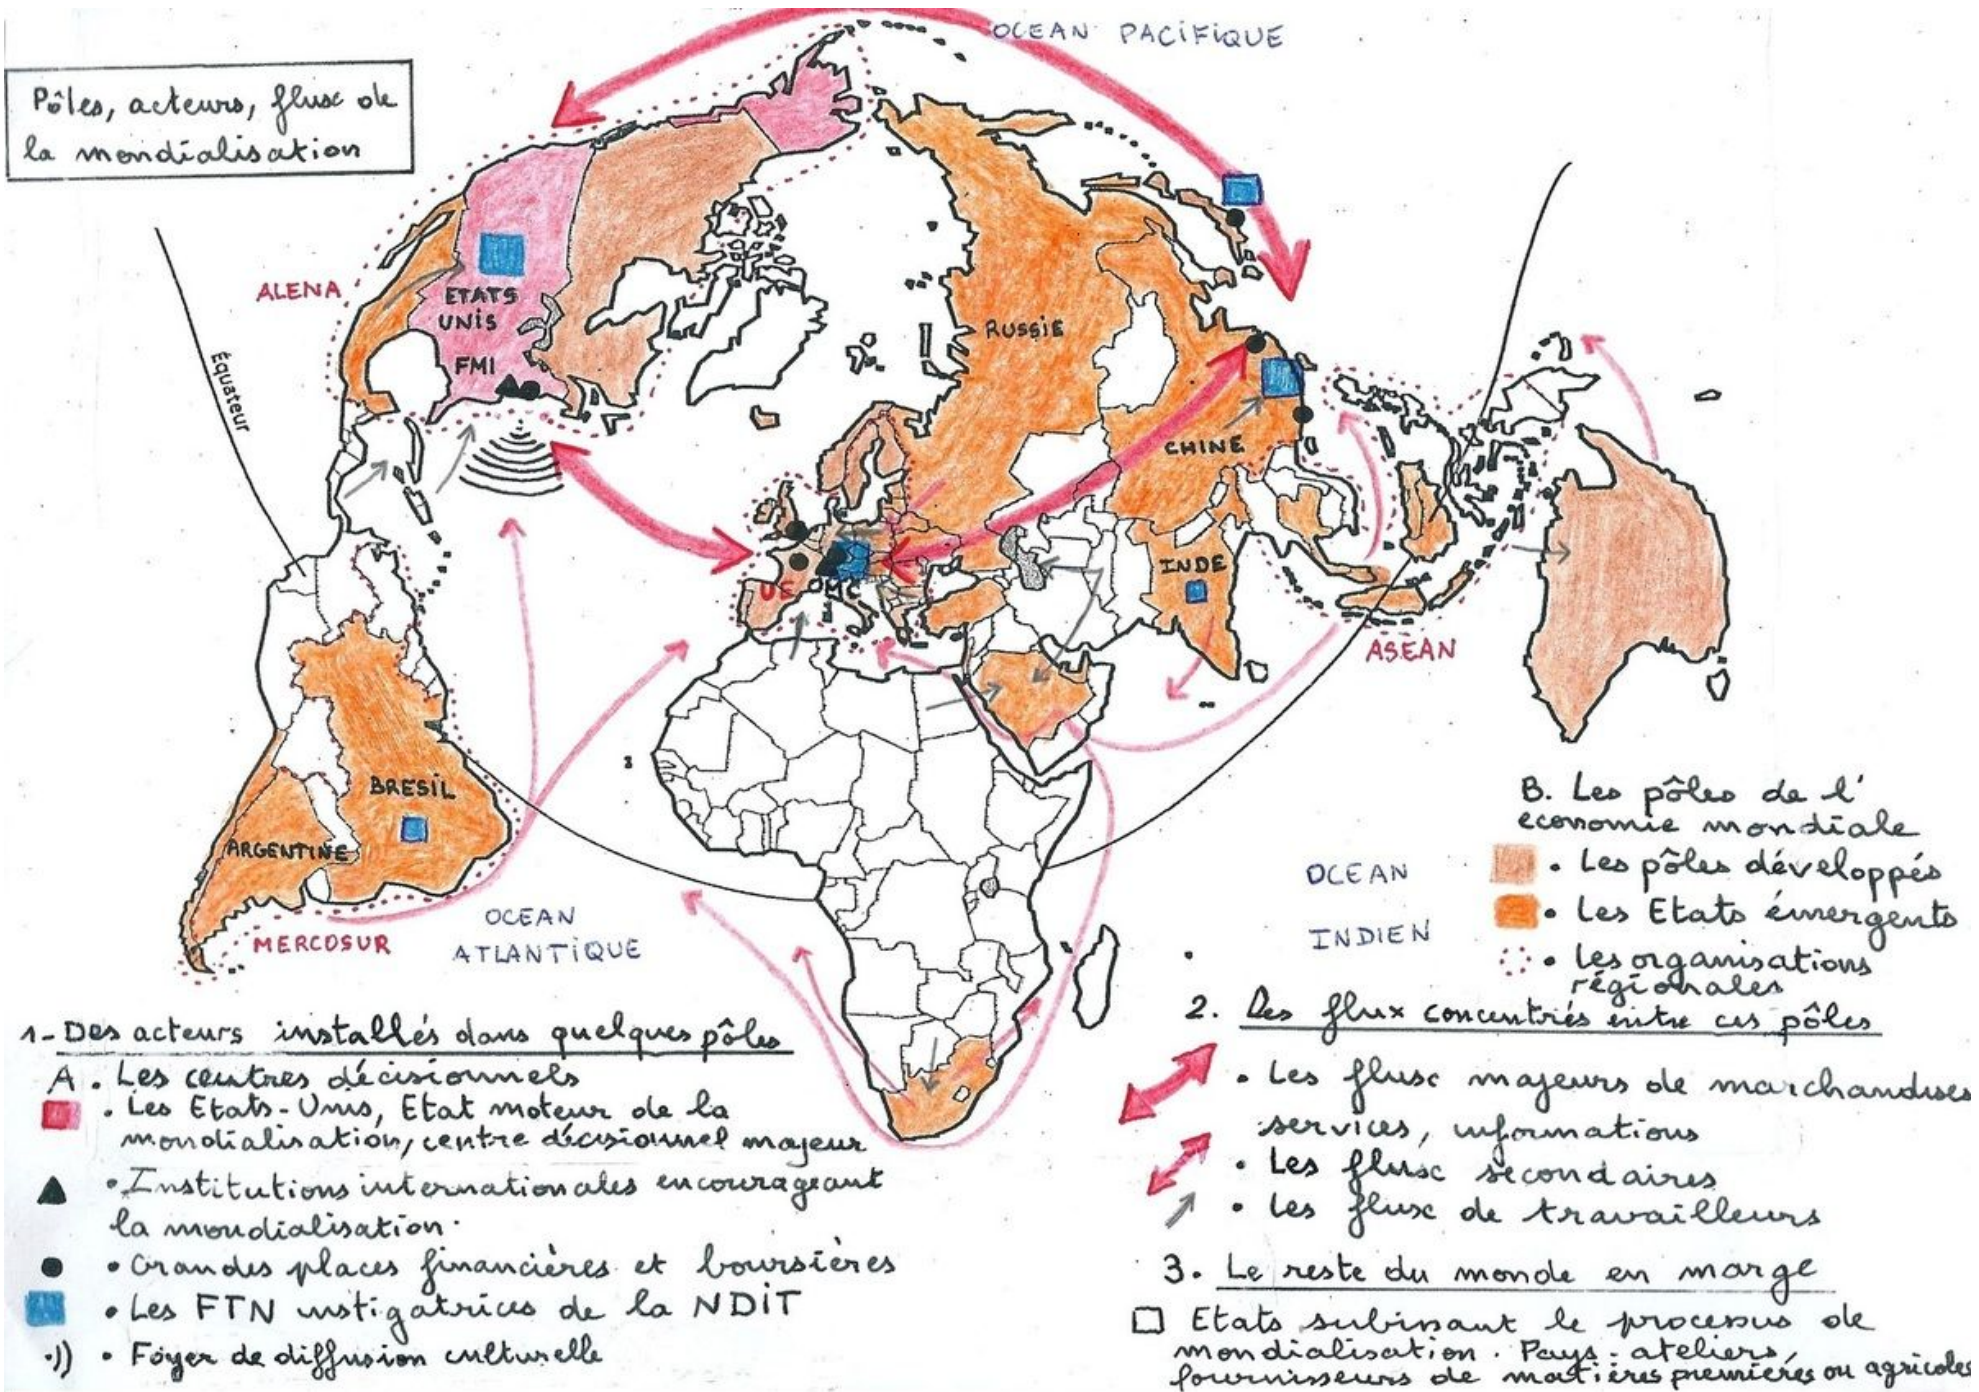 OCEAN PACIFIQUE
Pôles, acteurs, flux de
la mondialisation
ALENA
ETATS
UNIS
FMI
Équateur
RUSSIE
CHINE
INDE
UE OMC
ASEAN
BRESIL
ARGENTINE
MERCOSUR
OCEAN
ATLANTIQUE
OCEAN
INDIEN
1- Des acteurs installés dans quelques pôles
A. Les centres décisionnels
• Les Etats-Unis, Etat moteur de la
mondialisation, centre décisionnel majeur
• Institutions internationales encourageant
la mondialisation.
• Grandes places financières et boursières
• Les FTN instigatrices de la NDIT
• Foyer de diffusion culturelle
B. Les pôles de l'
économie mondiale
• Les pôles développés
• Les Etats émergents
• Les organisations
régionales
2. Des flux concentrés entre ces pôles
• Les flux majeurs de marchandises
services, informations
• Les flux secondaires
• Les flux de travailleurs
3. Le reste du monde en marge
Etats subissant le processus de
mondialisation. Pays-ateliers,
fournisseurs de matières premières ou agricoles